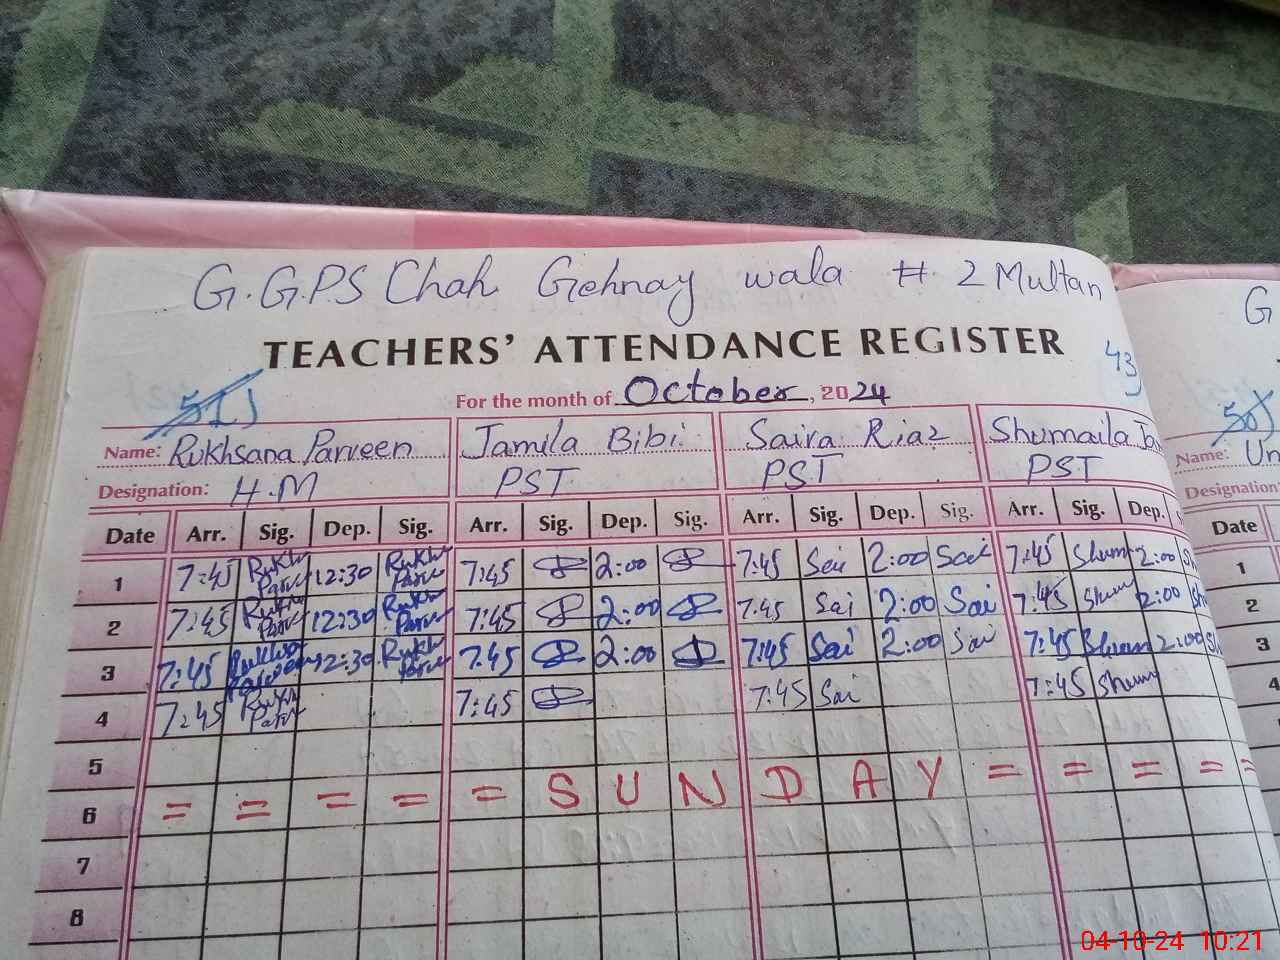 G.G.P.S Chah Gehnay wala # 2 Multan
G
TEACHERS' ATTENDANCE REGISTER
43
51
50
For the month of October, 2024
Name: Rukhsana Parveen Jamila Bibi Saira Riaz Shumaila
Name: Un
Designation: H.M PST PST PST
Designation:
Date Arr. Sig. Dep. Sig. Arr. Sig. Dep. Sig. Arr. Sig. Dep. Sig. Arr. Sig. Dep.
Date
1 7:45 Rukh Parv 12:30 Rukh Parv 7:45 2:00 7:45 Sai 2:00 Sai 7:45 Shum 2:00 Sh
1
2 7:45 Rukh Parv 12:30 Rukh Parv 7:45 2:00 7:45 Sai 2:00 Sai 7:45 Shum 2:00 Sh
2
3 7:45 Rukhsa Parveen 12:30 Rukh Parv 7:45 2:00 7:45 Sai 2:00 Sai 7:45 Shum 2:00 Sh
3
4 7:45 Rukh Parv 7:45 7:45 Sai 7:45 Shum
4
5
6 = = = = = S U N D A Y = = = = =
7
8
04-10-24 10:21